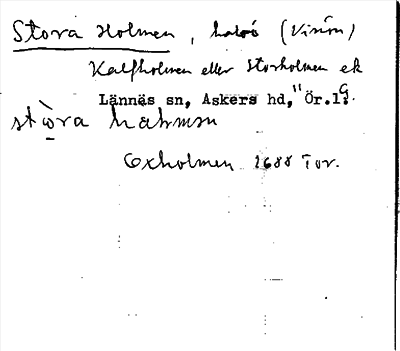 Stora Holmen, halvö (Vinön)
Kalfholmen eller Storholmen ek
Lännäs sn, Askers hd, Ör.l.
stòra hαlmən
Oxholmen 1688 Tor.